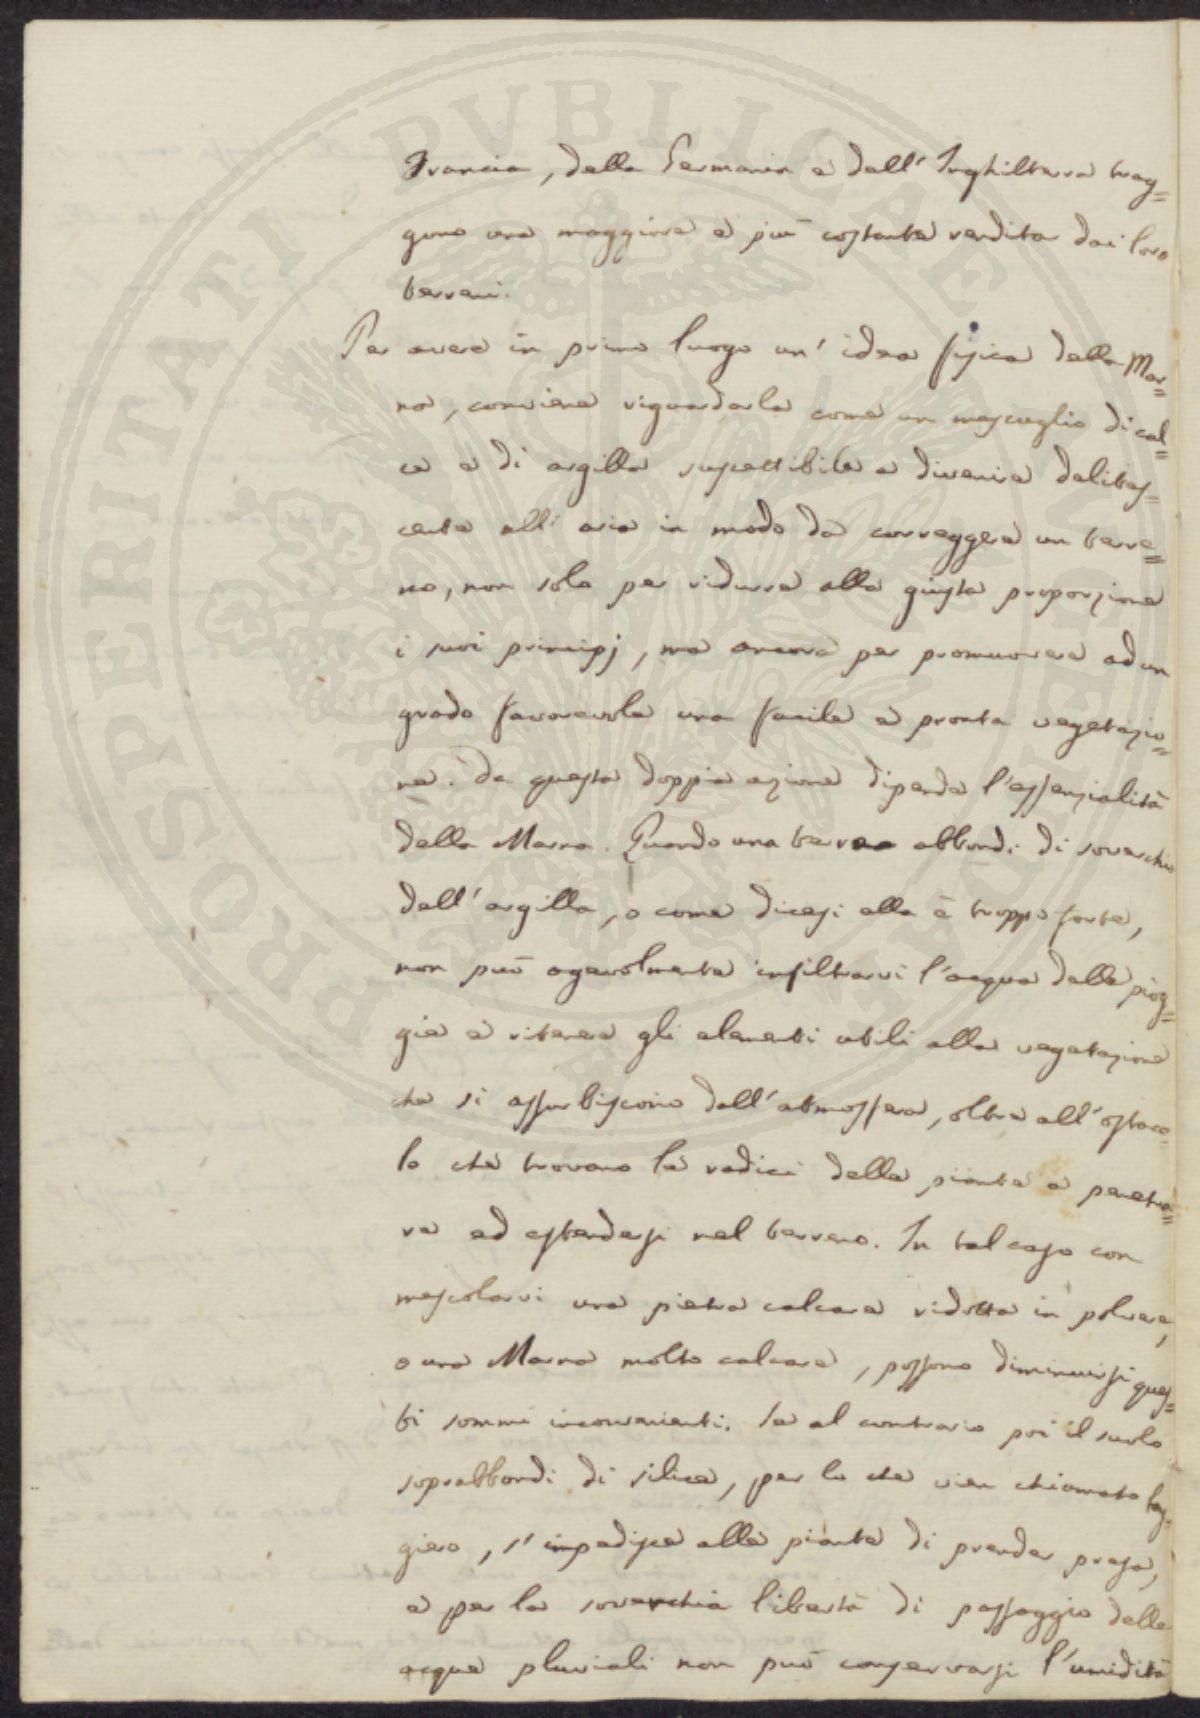 Francia, della Germania e dell'Inghilterra trag=
gono una maggiore e più costante rendita dai loro
terreni.
Per avere in primo luogo un'idea fisica della Mar=
na, conviene riguardarla come un mescuglio di cal=
ce e di argilla suscettibile a divenire delites=
cente all'aria in modo da correggere un terre=
no, non solo per ridurre alla giusta proporzione
i suoi principj, ma ancora per promuovere ad un
grado favorevole una facile e pronta vegetazio=
ne. Da questa doppia azione dipende l'essenzialità
della Marna. Quando una terra abbondi di soverchio
dell'argilla, o come dicesi ella è troppo forte,
non può agevolmente infiltrarvi l'acqua delle piog=
gie e ritenere gli elementi utili alla vegetazione
che si assorbiscono dall'atmosfera, oltre all'ostaco=
lo che trovano le radici delle piante a penetra=
re ed estendersi nel terreno. In tal caso con
mescolarvi una pietra calcare ridotta in polvere,
o una Marna molto calcare, possono diminuirsi ques=
ti sommi inconvenienti. Se al contrario poi il suolo
soprabbondi di silice, per lo che vien chiamato leg=
giero, s'impedisce alle piante di prender presa,
e per la soverchia libertà di passaggio delle
acque pluviali non può conservarsi l'umidità
PROSPERITATI PVBLICAE AVGENDAE